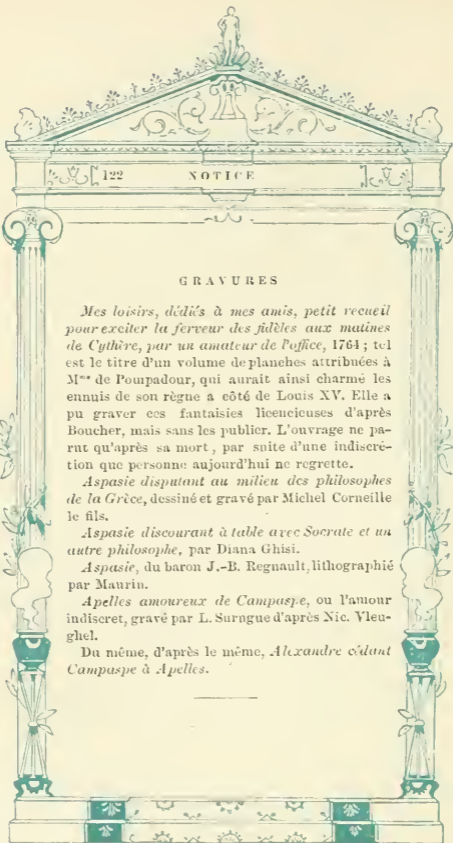 122 NOTICE
GRAVURES
Mes loisirs, dédiés à mes amis, petit recueil
pour exciter la ferveur des fidèles aux matines
de Cythère, par un amateur de l'office, 1764 ; tel
est le titre d'un volume de planches attribuées à
Mme de Pompadour, qui aurait ainsi charmé les
ennuis de son règne à côté de Louis XV. Elle a
pu graver ces fantaisies licencieuses d'après
Boucher, mais sans les publier. L'ouvrage ne pa-
rut qu'après sa mort, par suite d'une indiscré-
tion que personne aujourd'hui ne regrette.
Aspasie disputant au milieu des philosophes
de la Grèce, dessiné et gravé par Michel Corneille
le fils.
Aspasie discourant à table avec Socrate et un
autre philosophe, par Diana Ghisi.
Aspasie, du baron J.-B. Regnault, lithographié
par Maurin.
Apelles amoureux de Campaspe, ou l'amour
indiscret, gravé par L. Surugue d'après Nic. Vleu-
ghel.
Du même, d'après le même, Alexandre cédant
Campaspe à Apelles.